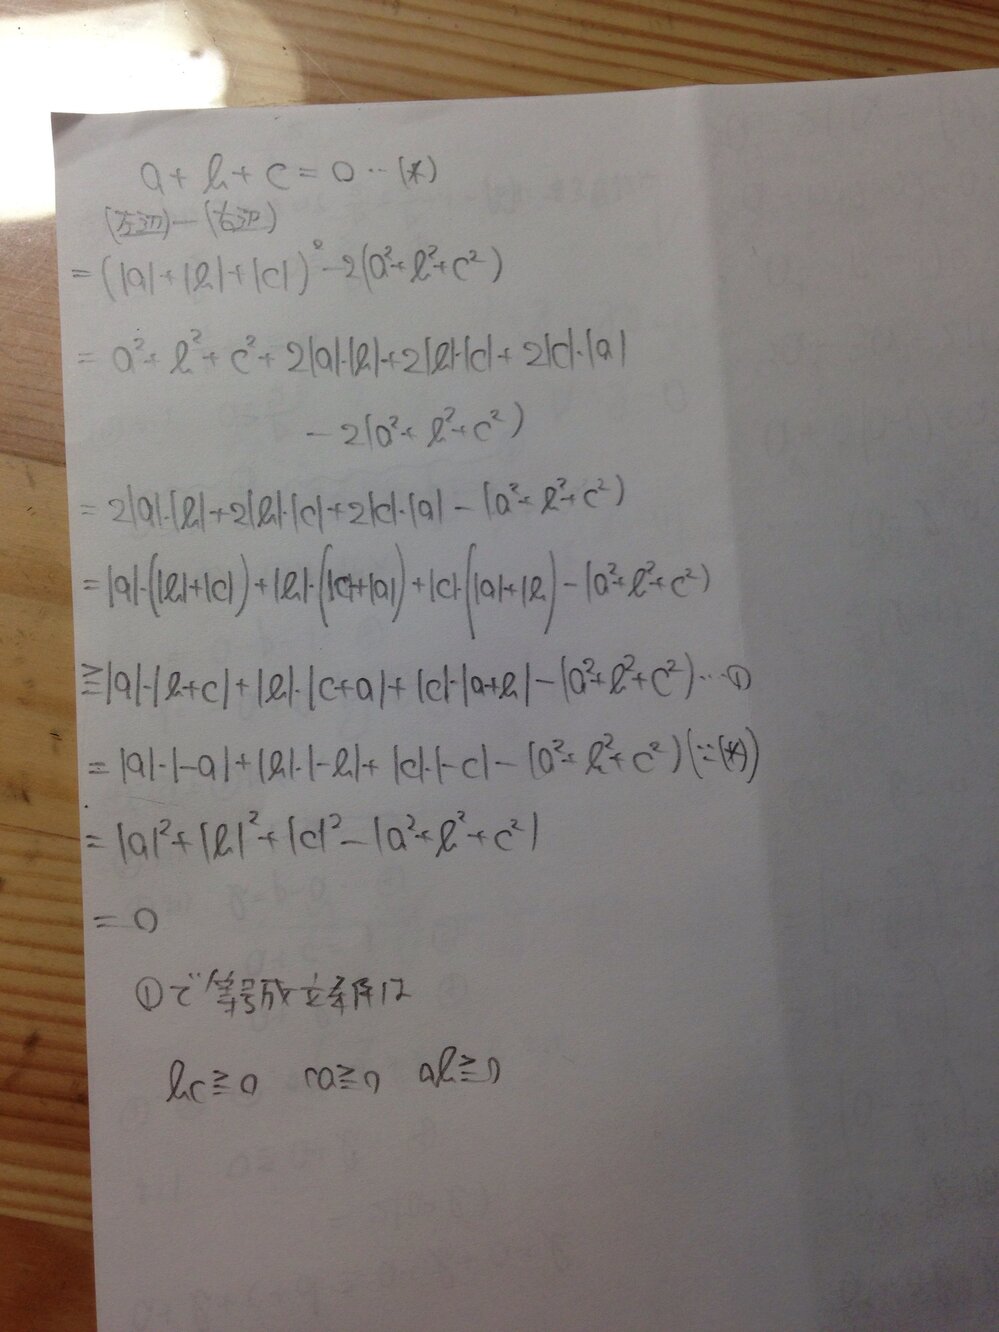 a+b+c=0…(*)
(左辺)-(右辺)
=(|a|+|b|+|c|)²-2(a²+b²+c²)
=a²+b²+c²+2|a|·|b|+2|b|·|c|+2|c|·|a|
-2(a²+b²+c²)
=2|a|·|b|+2|b|·|c|+2|c|·|a|-(a²+b²+c²)
=|a|·(|b|+|c|)+|b|·(|c|+|a|)+|c|·(|a|+|b|)-(a²+b²+c²)
≧|a|·|b+c|+|b|·|c+a|+|c|·|a+b|-(a²+b²+c²)…①
=|a|·|-a|+|b|·|-b|+|c|·|-c|-(a²+b²+c²)(∵(*))
=|a|²+|b|²+|c|²-(a²+b²+c²)
=0
①で等号成立条件は
bc≧0 ca≧0 ab≧0